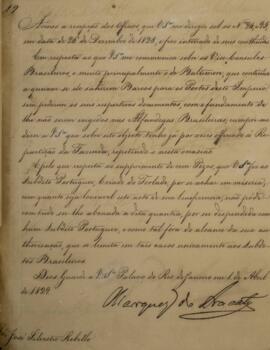 Accuso a recepção dos Officios, que V. Sa. me dirigio sob os Nos.
em data de 26 de Dezembro de 1828, e fico inteirado de seus conteúdos.
Em resposta ao que V. Sa. me communica sobre os Vice Consules
Brasileiros, e muito principalmente o de Baltimore, que continúa
a queixar-se de sahirem Barcos para os Portos deste Imperio
sem pedirem os seus respectivos documentos, com o fundamento de
lhe não serem exigidos nas Alfandegas Brasileiras, cumpre-me
dizer a V. Sa. que sobre este objecto tenho já por vezes officiado á Re-
partição da Fazenda, repetindo-o nesta occasião.
E pelo que respeita ao supprimento de um Pezos, que V. Sa. fez ao
Subdito Portuguez, Criado de Torlade, por se achar em miseria,
em quanto seja louvavel este acto de sua beneficencia, não pode
com tudo ser-lhe abonada a dita quantia, por ser despendida com
hum Subdito Portuguez, e como tal fora do alcance da sua au-
thorisação, que a limita em taes casos unicamente aos Subdi-
tos Brasileiros.
Deos Guarde a V. Sa. Palacio do Rio de Janeiro em 1 de Abril
de 1829.
Marquez do Aracaty
José Silvestre Rebello